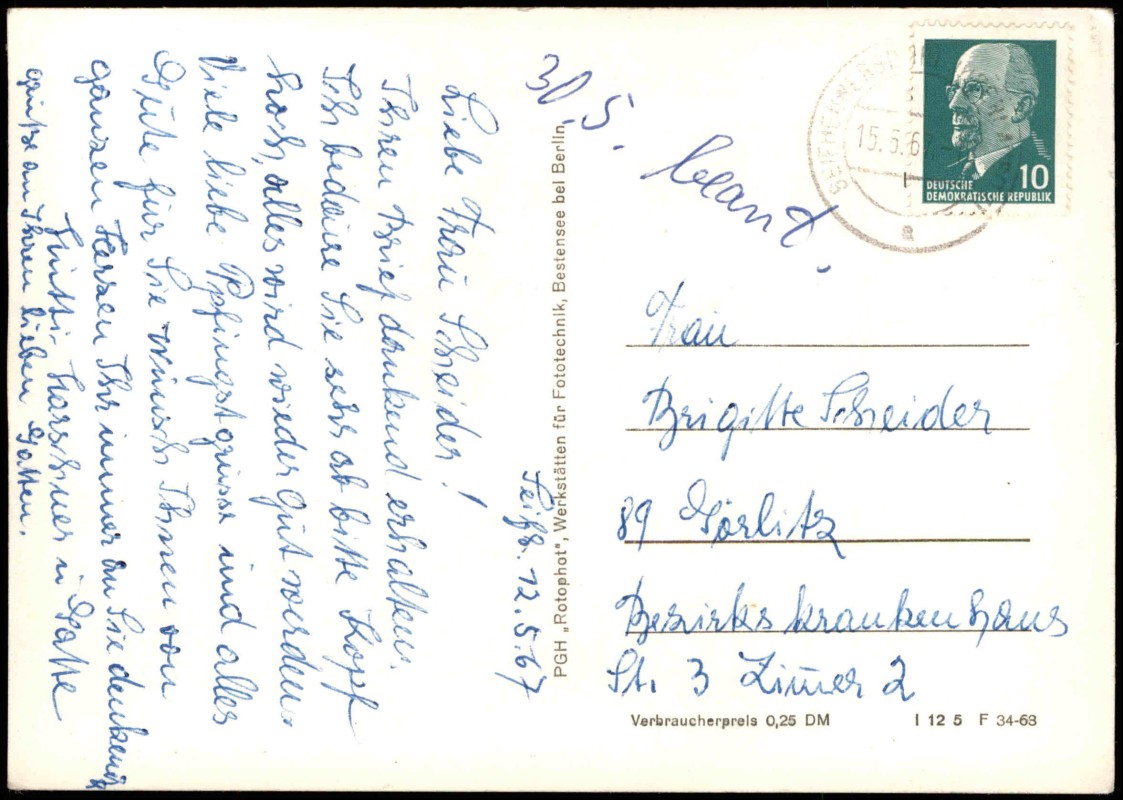 Seifh. 12.5.67
Liebe Frau Scheider!
Ihren Brief dankend erhalten.
Ich bedaure Sie sehr ab bitte Kopf
hoch, alles wird wieder gut werden.
Viele liebe Pfingstgrüsse und alles
Gute für Sie wünsch Ihnen von
ganzen Herzen Ihr immer an Sie denkend
Gatte
grüße an Ihren lieben Gatten.
PGH „Rotophot", Werkstätten für Fototechnik, Bestensee bei Berlin
30.5.
15.5.67
a
DEUTSCHE
DEMOKRATISCHE REPUBLIK
10
Frau
Brigitte Scheider
89 Görlitz
Bezirkskrankenhaus
St. 3 Zimmer 2
Verbraucherpreis 0,25 DM
I 12 5 F 34-63